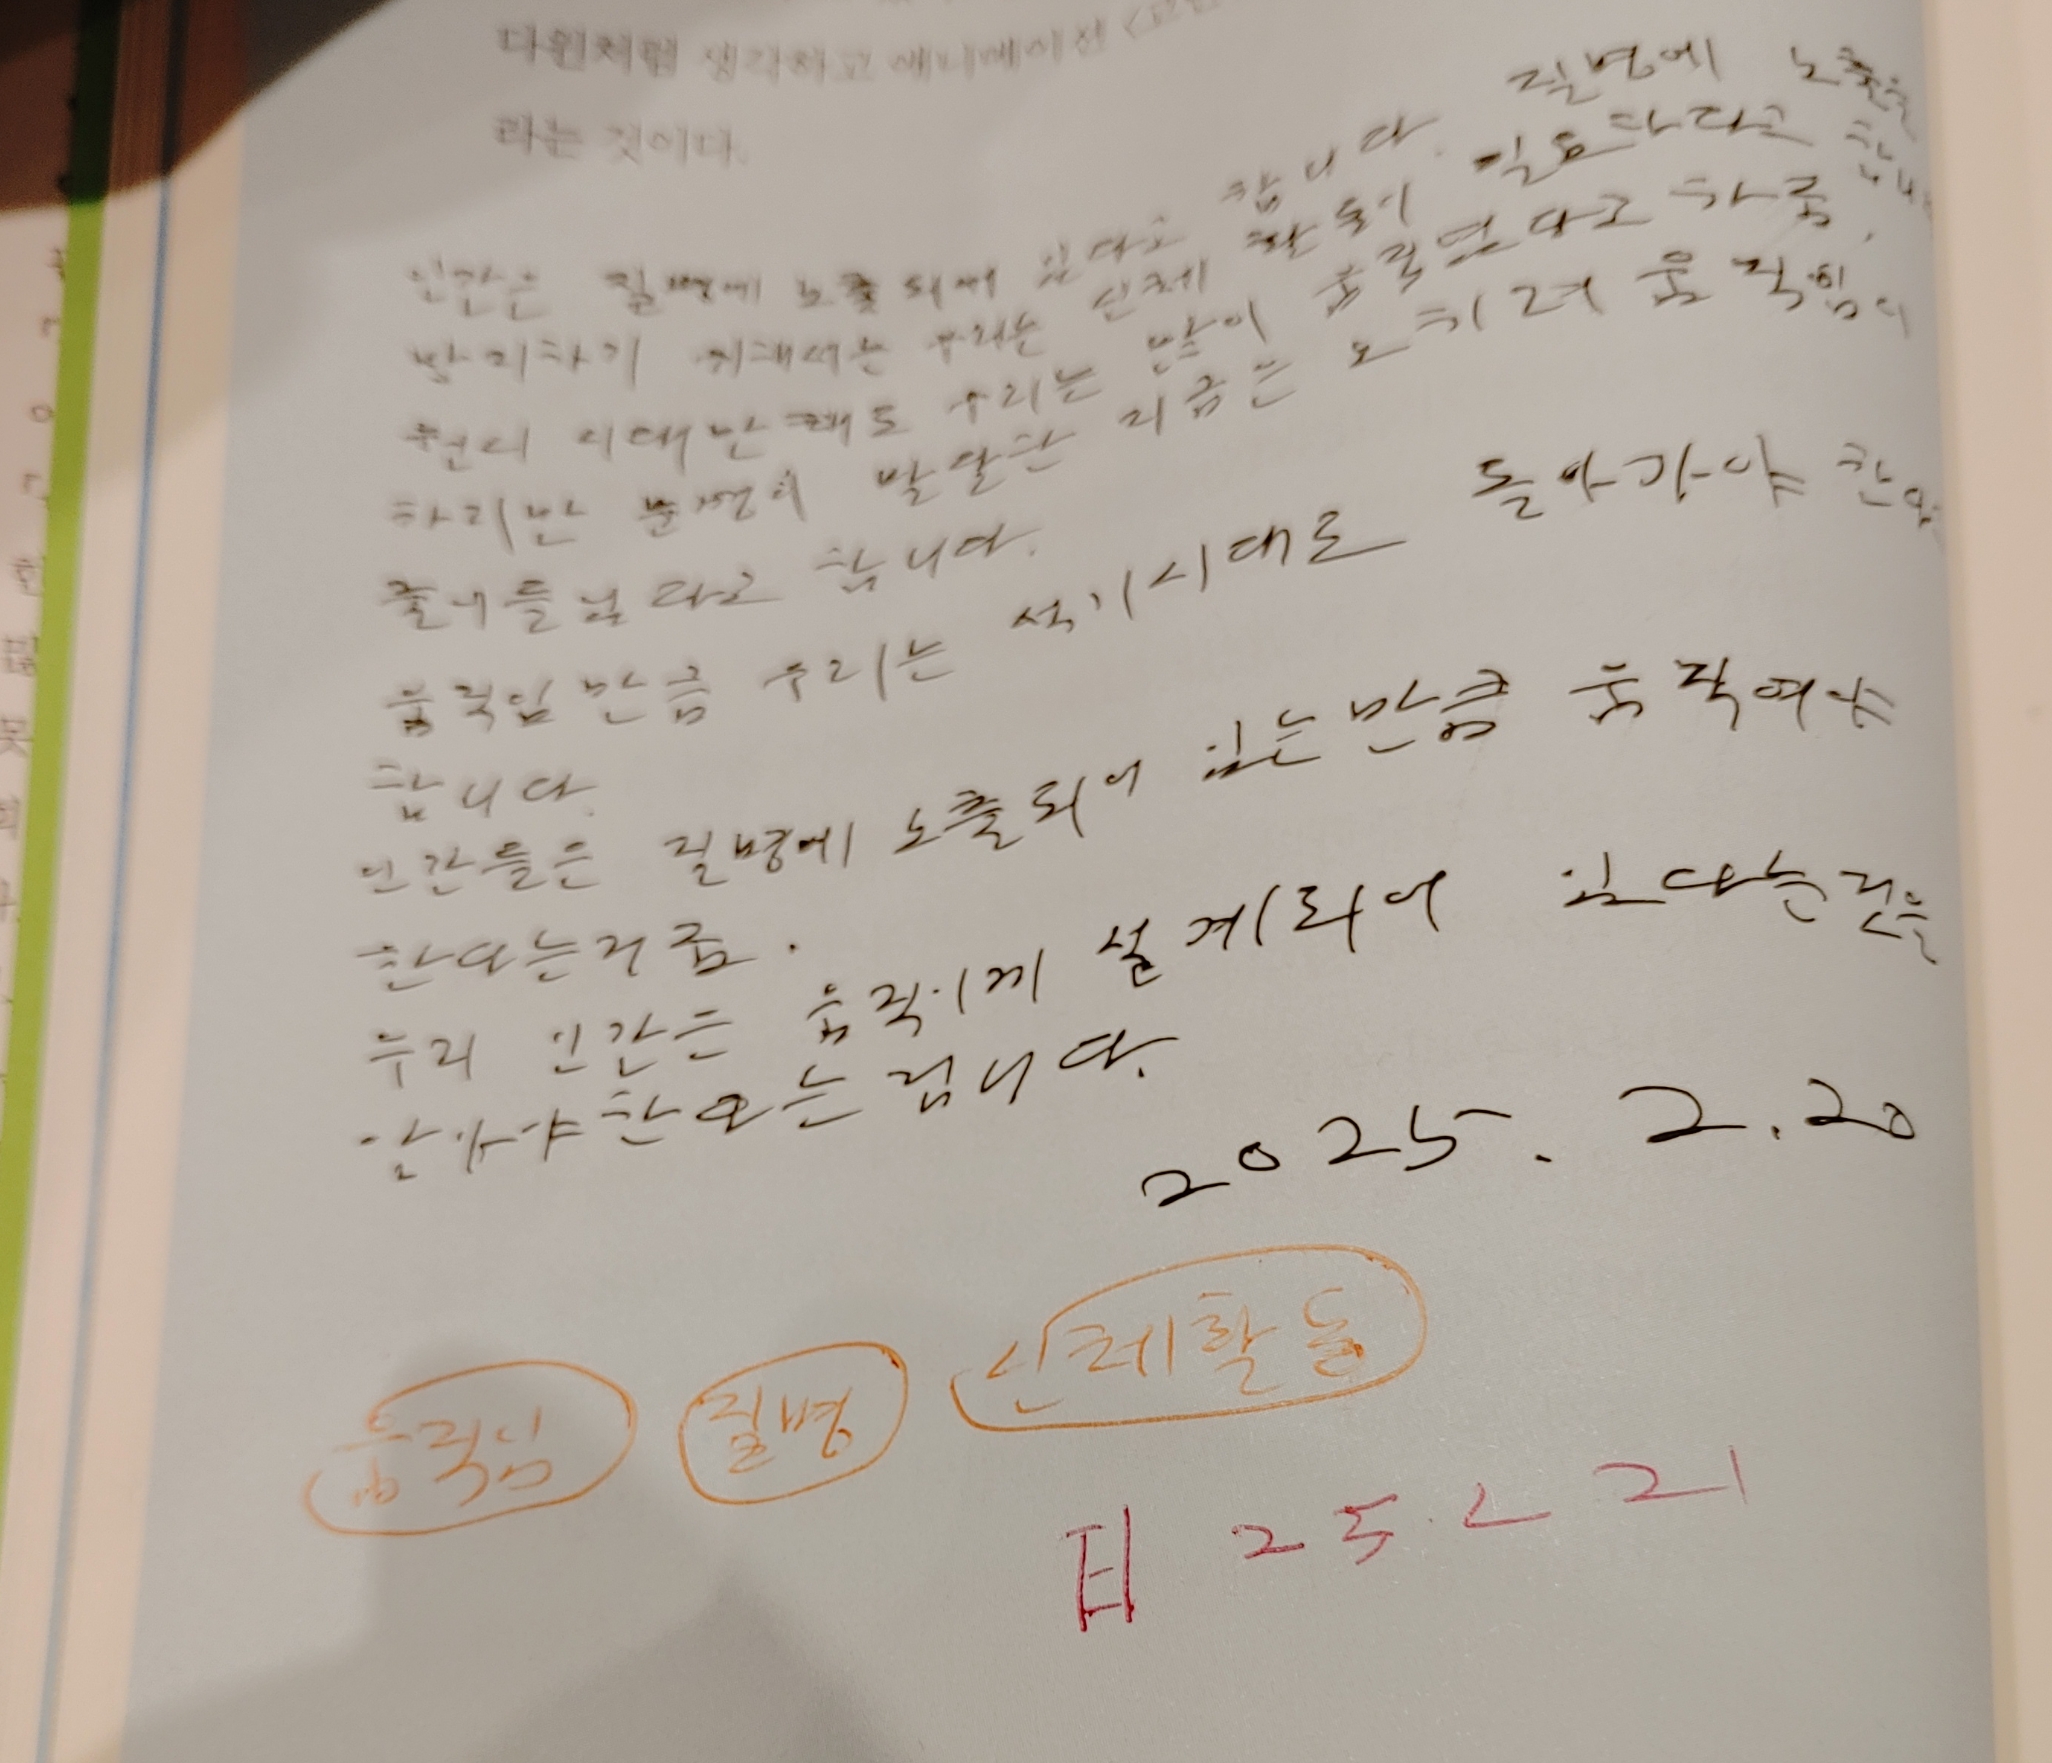 다윈처럼 생각하고 애니메이션
라는 것이다.
인간은 질병에 노출되어 있다고 합니다. 질병에 노출을
방지하기 위해서는 우리는 신체 활동이 필요하다고 합니다
원시 시대만 해도 우리는 많이 움직였다고 하죠.
하지만 문명이 발달한 지금은 오히려 움직임이
줄어들었다고 합니다.
움직임 만큼 우리는 석기시대로 돌아가야 한다
합니다.
인간들은 질병에 노출되어 있는만큼 움직여야
한다는거죠.
우리 인간은 움직이게 설계되어 있다는것을
알아야한다는겁니다.
2025. 2.20
움직임 질병 신체활동
25. 2 21